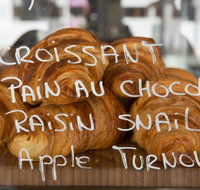 CROISSANT
PAIN AU CHOCO
RAISIN SNAIL
Apple TURNOV